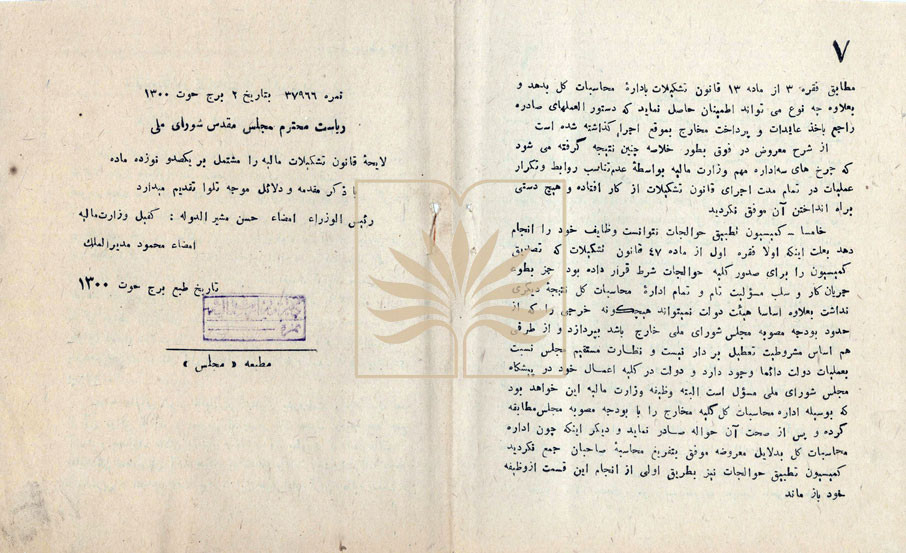 ۷
مطابق فقره ۳ از ماده ۱۳ قانون تشکیلات باداره محاسبات کل بدهد و
بعلاوه چه نوع می تواند اطمینان حاصل نماید که دستور العملهای صادره
راجع باخذ عایدات و پرداخت مخارج بموقع اجرا گذاشته شده است
از شرح معروض در فوق بطور خلاصه چنین نتیجه گرفته می شود
که چرخ های سه‌اداره مهم وزارت مالیه بواسطهٔ عدم‌تناسب روابط وتکرار
عملیات در تمام مدت اجرای قانون تشکیلات از کار افتاده و هیچ دستی
براه انداختن آن موفق نگردید
خامسا ـ کمیسیون تطبیق حوالجات نتوانست وظایف خود را انجام
دهد بعلت اینکه اولا فقره اول از ماده ۴۷ قانون تشکیلات که تصدیق
کمیسیون را برای صدور کلیه حوالجات شرط قرار داده بود جز بطوء
جریان کار و سلب مسؤلیت تام و تمام ادارهٔ محاسبات کل نتیجهٔ دیگری
نداشت بعلاوه اساسا هیئت دولت نمیتواند هیچگونه خرجی را که از
حدود بودجه مصوبه مجلس شورای ملی خارج باشد بپردازد و از طرفی
هم اساس مشروطیت تعطیل بر دار نیست و نظارت مستقیم مجلس نسبت
بعملیات دولت دائما وجود دارد و دولت در کلیه اعمال خود در پیشگاه
مجلس شورای ملی مسؤل است البته وظیفه وزارت مالیه این خواهد بود
که بوسیله اداره محاسبات کل کلیه مخارج را با بودجه مصوبه مجلس مطابقه
کرده و پس از صحت آن حواله صادر نماید و دیگر اینکه چون اداره
محاسبات کل بدلایل معروضه موفق بتفریغ محاسبهٔ صاحبان جمع نگردید
کمیسیون تطبیق حوالجات نیز بطریق اولی از انجام این قسمت ازوظیفه
خود باز ماند
نمره ۳۷۹۶۶ بتاریخ ۲ برج حوت ۱۳۰۰
ریاست محترم مجلس مقدس شورای ملی
لایحهٔ قانون تشکیلات مالیه را مشتمل بر یکصدو نوزده ماده
با ذکر مقدمه و دلائل موجه تلوا تقدیم میدارد
رئیس الوزراء امضاء حسن مشیر الدوله : کفیل وزارت مالیه
امضاء محمود مدیرالملک
تاریخ طبع برج حوت ۱۳۰۰
مطبعه « مجلس »